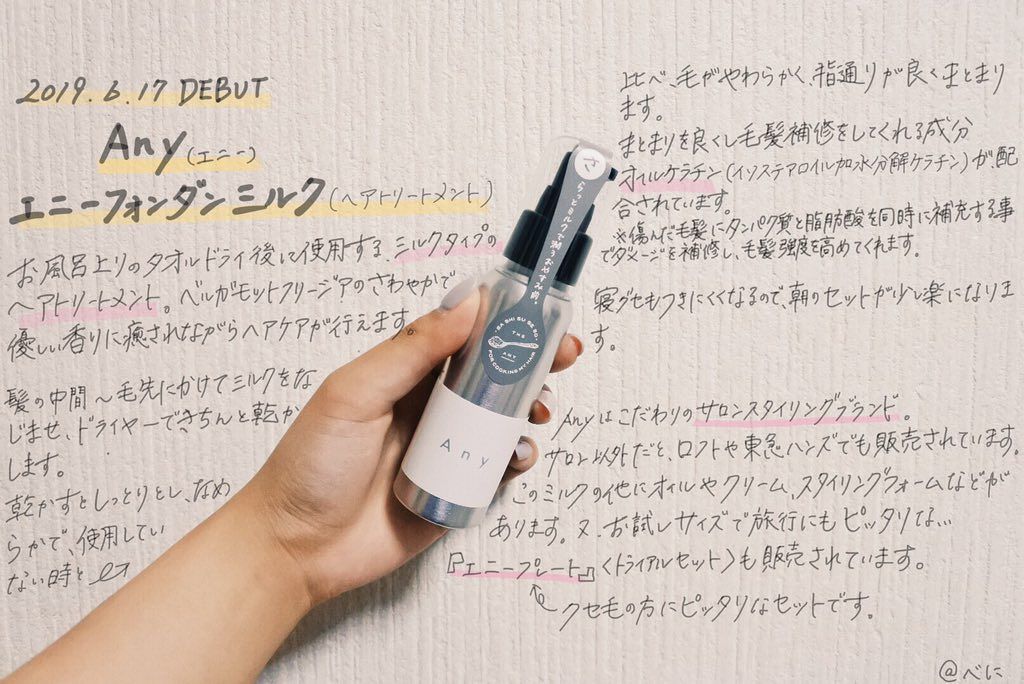 2019.6.17 DEBUT
Any(エニー)
エニーフォンダンミルク(ヘアトリートメント)
お風呂上りのタオルドライ後に使用する、ミルクタイプの
ヘアトリートメント。ベルガモットフリージアのさわやかで
優しい香りに癒されながらヘアケアが行えます。
髪の中間〜毛先にかけてミルクをな
じませ、ドライヤーできちんと乾か
します。
乾かすとしっとりとし、なめ
らかで、使用してい
ない時と
比べ、毛がやわらかく、指通りが良くまとまり
ます。
まとまりを良くし毛髪補修をしてくれる成分
オイルケラチン(イソステアロイル加水分解ケラチン)が配
合されています。
※傷んだ毛髪にタンパク質と脂肪酸を同時に補充する事
でダメージを補修し、毛髪強度を高めてくれます。
寝グセもつきにくくなるので、朝のセットが少し楽になりま
す。
Anyはこだわりのサロンスタイリングブランド。
サロン以外だと、ロフトや東急ハンズでも販売されています。
このミルクの他にオイルやクリーム、スタイリングフォームなどが
あります。又、お試しサイズで旅行にもピッタリな…
『エニープレート』〈トライアルセット〉も販売されています。
クセ毛の方にピッタリなセットです。
さ
らっとミルクで潤うおやすみ前。
SA SHI SU SE SO
THE
ANY
FOR COOKING MY HAIR
Any
@べに